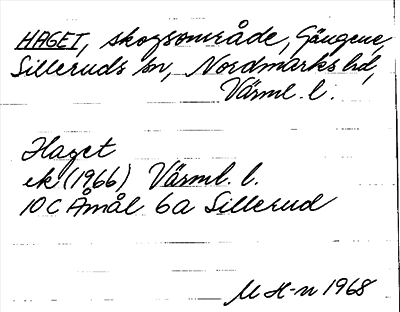 HAGET, skogsområde, Gängene,
Silleruds sn, Nordmarks hd,
Värml. l.
Haget
ek (1966) Värml. l.
10C Åmål 6a Sillerud
M H-n 1968